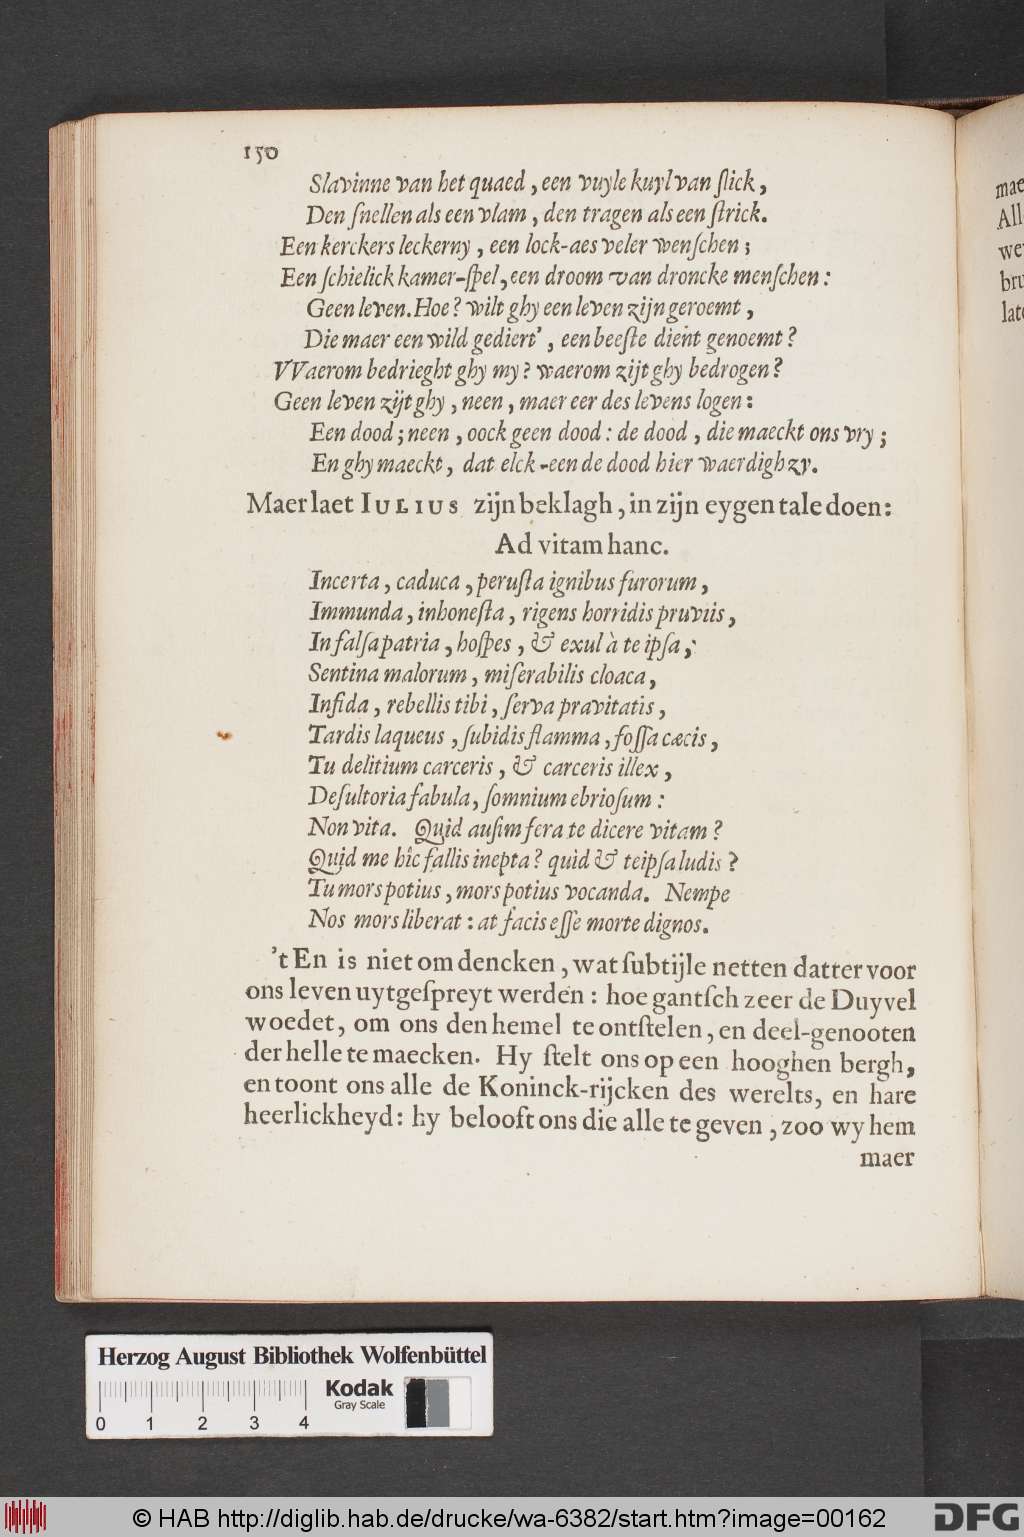 150
Slavinne van het quaed , een vuyle kuyl van ſlick ,
Den ſnellen als een vlam , den tragen als een ſtrick.
Een kerckers leckerny , een lock-aes veler wenſchen ;
Een ſchielick kamer-ſpel, een droom van droncke menſchen :
Geen leven. Hoe ? wilt ghy een leven zijn geroemt ,
Die maer een wild gediert’ , een beeſte dient genoemt ?
VVaerom bedrieght ghy my ? waerom zijt ghy bedrogen ?
Geen leven zijt ghy , neen , maer eer des levens logen :
Een dood ; neen , oock geen dood : de dood , die maeckt ons vry ;
En ghy maeckt , dat elck-een de dood hier waerdigh zy.
Maer laet IULIUS zijn beklagh , in zijn eygen tale doen :
Ad vitam hanc.
Incerta , caduca , peruſta ignibus furorum ,
Immunda , inhoneſta , rigens horridis pruviis ,
In falſa patria , hoſpes , & exul à te ipſa ;
Sentina malorum , miſerabilis cloaca ,
Infida , rebellis tibi , ſerva pravitatis ,
Tardis laqueus , ſubidis flamma , foſſa cæcis ,
Tu delitium carceris , & carceris illex ,
Deſultoria fabula , ſomnium ebrioſum :
Non vita. Quid auſim fera te dicere vitam ?
Quid me hîc fallis inepta ? quid & teipſa ludis ?
Tu mors potius , mors potius vocanda. Nempe
Nos mors liberat : at facis eſſe morte dignos.
’t En is niet om dencken , wat ſubtijle netten datter voor
ons leven uytgeſpreyt werden : hoe gantſch zeer de Duyvel
woedet , om ons den hemel te ontſtelen , en deel-genooten
der helle te maecken. Hy ſtelt ons op een hooghen bergh,
en toont ons alle de Koninck-rijcken des werelts, en hare
heerlickheyd : hy belooft ons die alle te geven , zoo wy hem
maer
mae
All
we
bru
late
Herzog August Bibliothek Wolfenbüttel
Kodak
Gray Scale
0 1 2 3 4
© HAB http://diglib.hab.de/drucke/wa-6382/start.htm?image=00162
DFG